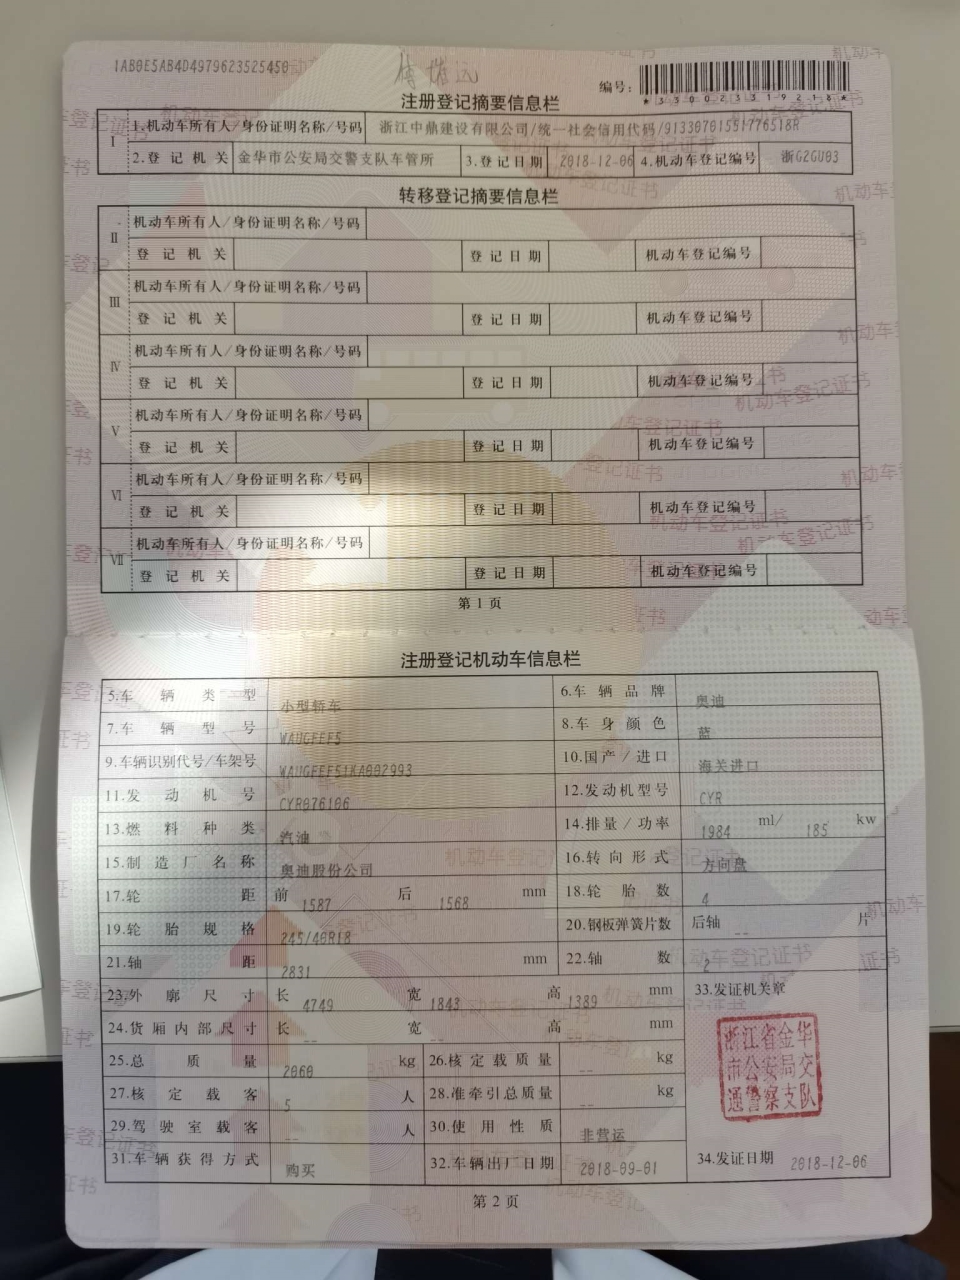 1AB0E5AB4D4979623525450
编号:
*330023319218*
注册登记摘要信息栏
I 1.机动车所有人/身份证明名称/号码 浙江中鼎建设有限公司/统一社会信用代码/91330701551776518R
2.登记机关 金华市公安局交警支队车管所 3.登记日期 2018-12-06 4.机动车登记编号 浙G2GU03
转移登记摘要信息栏
II 机动车所有人/身份证明名称/号码
登记机关 登记日期 机动车登记编号
III 机动车所有人/身份证明名称/号码
登记机关 登记日期 机动车登记编号
IV 机动车所有人/身份证明名称/号码
登记机关 登记日期 机动车登记编号
V 机动车所有人/身份证明名称/号码
登记机关 登记日期 机动车登记编号
VI 机动车所有人/身份证明名称/号码
登记机关 登记日期 机动车登记编号
VII 机动车所有人/身份证明名称/号码
登记机关 登记日期 机动车登记编号
第1页
注册登记机动车信息栏
5.车辆类型 小型轿车 6.车辆品牌 奥迪
7.车辆型号 WAUGFEF5 8.车身颜色 蓝
9.车辆识别代号/车架号 WAUGFEF51KA002993 10.国产/进口 海关进口
11.发动机号 CYR076106 12.发动机型号 CYR
13.燃料种类 汽油 14.排量/功率 1984 ml/ 185 kw
15.制造厂名称 奥迪股份公司 16.转向形式 方向盘
17.轮距 前 1587 后 1568 mm 18.轮胎数 4
19.轮胎规格 245/40R18 20.钢板弹簧片数 后轴 -- 片
21.轴距 2831 mm 22.轴数 2
23.外廓尺寸 长 4749 宽 1843 高 1389 mm 33.发证机关章
24.货厢内部尺寸 长 -- 宽 -- 高 -- mm
25.总质量 2060 kg 26.核定载质量 -- kg
27.核定载客 5 人 28.准牵引总质量 -- kg
29.驾驶室载客 -- 人 30.使用性质 非营运
31.车辆获得方式 购买 32.车辆出厂日期 2018-09-01 34.发证日期 2018-12-06
浙江省金华
市公安局交
通警察支队
第2页